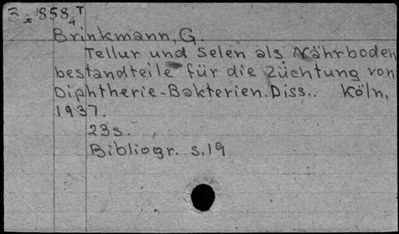 2 x 858 4 T
Brinkmann, G.
Tellur und Selen als Nährboden
bestandteile für die Züchtung von
Diphtherie-Bakterien. Diss.. Köln,
1937.
23s.
Bibliogr. s.19